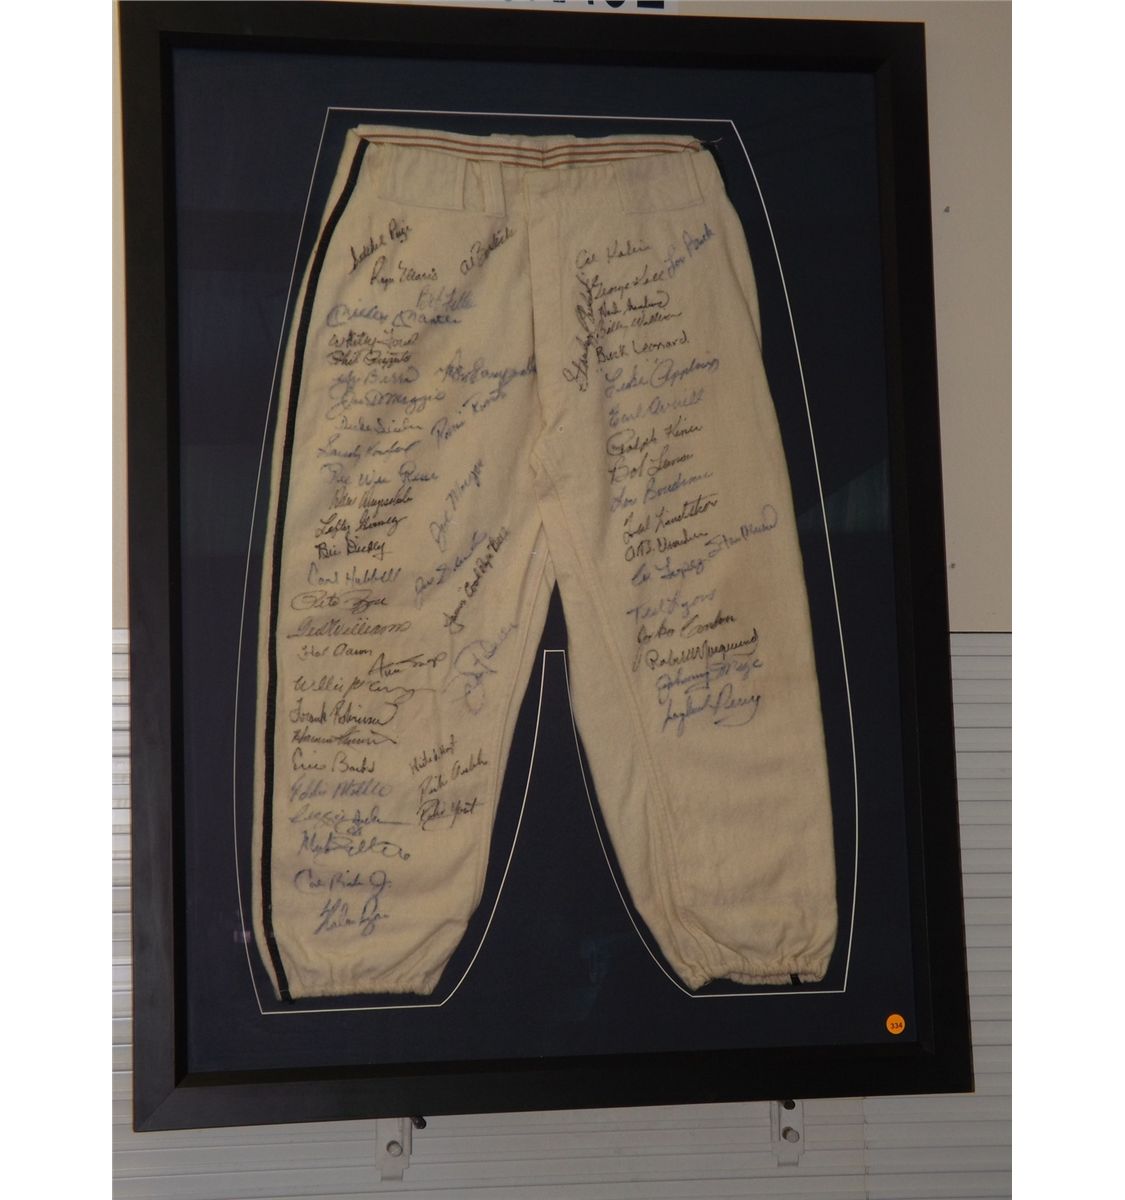 Satchel Paige
Al Barlick
Roger Maris
Bob Feller
Mickey Mantle
Whitey Ford
Phil Rizzuto
Yogi Berra
Roy Campanella
Joe DiMaggio
Duke Snider
Robin Roberts
Sandy Koufax
Pee Wee Reese
Joe Morgan
Don Drysdale
Lefty Gomez
Bill Dickey
Carl Hubbell
James "Cool Papa" Bell
Pete Rose
Ted Williams
Hank Aaron
Willie McCovey
Frank Robinson
Harmon Killebrew
Ernie Banks
Eddie Mathews
Reggie Jackson
Robin Yount
Cal Ripken Jr.
Nolan Ryan
Al Kaline
Lou Brock
George Kell
Billy Williams
Buck Leonard
"Luke" Appling
Earl Averill
Ralph Kiner
Bob Lemon
Lou Boudreau
Stan Musial
Al Lopez
Ted Lyons
Jocko Conlan
Rube Marquard
Johnny Mize
Gaylord Perry
334